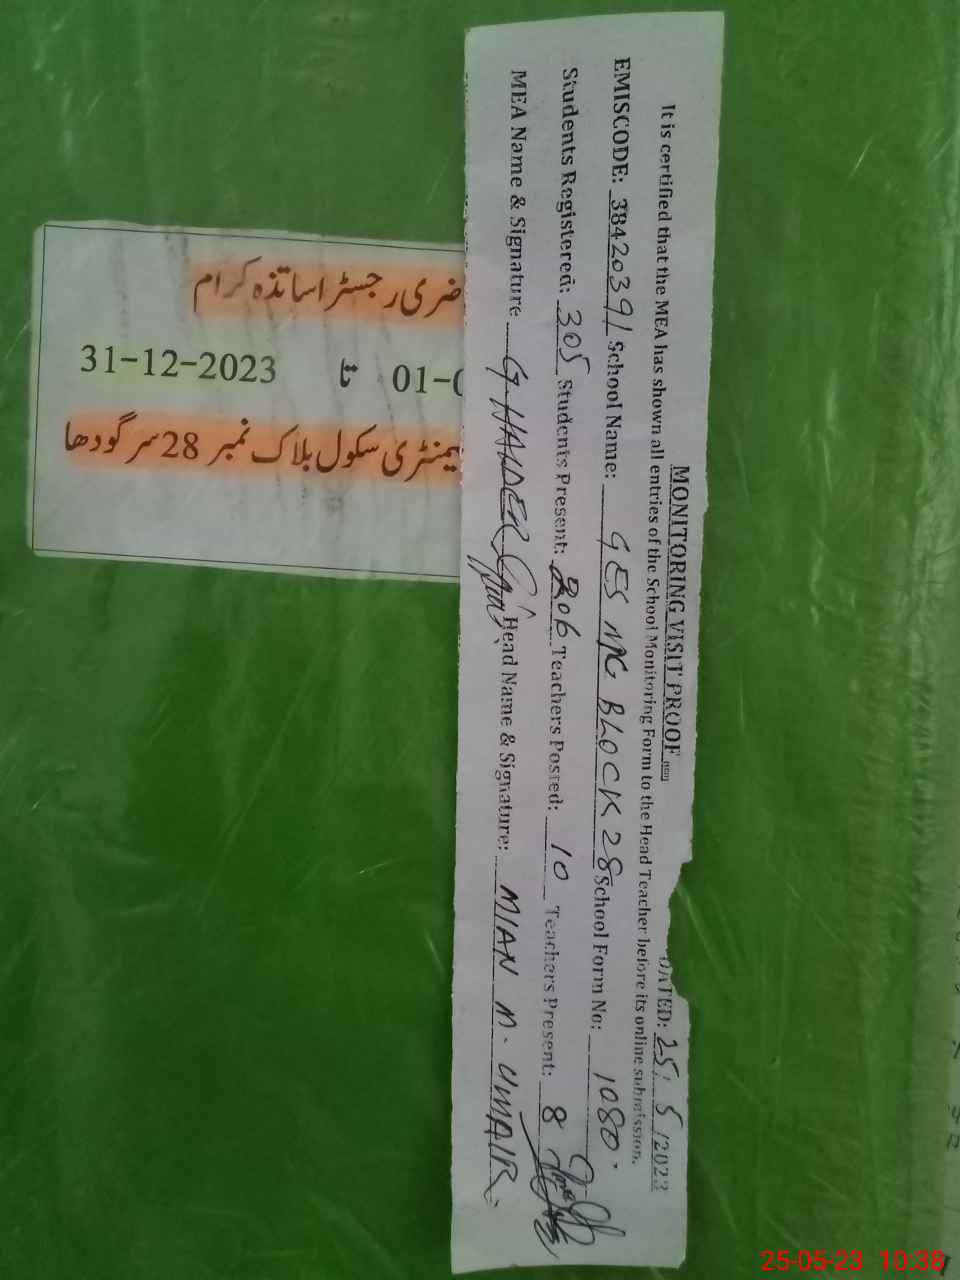 MONITORING VISIT PROOF
DATED: 25/5/2023
It is certified that the MEA has shown all entries of the School Monitoring Form to the Head Teacher before its online submission.
EMISCODE: 38420391 School Name: GES MC BLOCK 28 School Form No: 1080.
Students Registered: 305 Students Present: 206 Teachers Posted: 10 Teachers Present: 8
MEA Name & Signature G. HAIDER Head Name & Signature: MIAN M. UMAIR
ضری رجسٹر اساتذہ کرام
01-0 تا 31-12-2023
یمنٹری سکول بلاک نمبر 28 سرگودھا
25-05-23 10:38